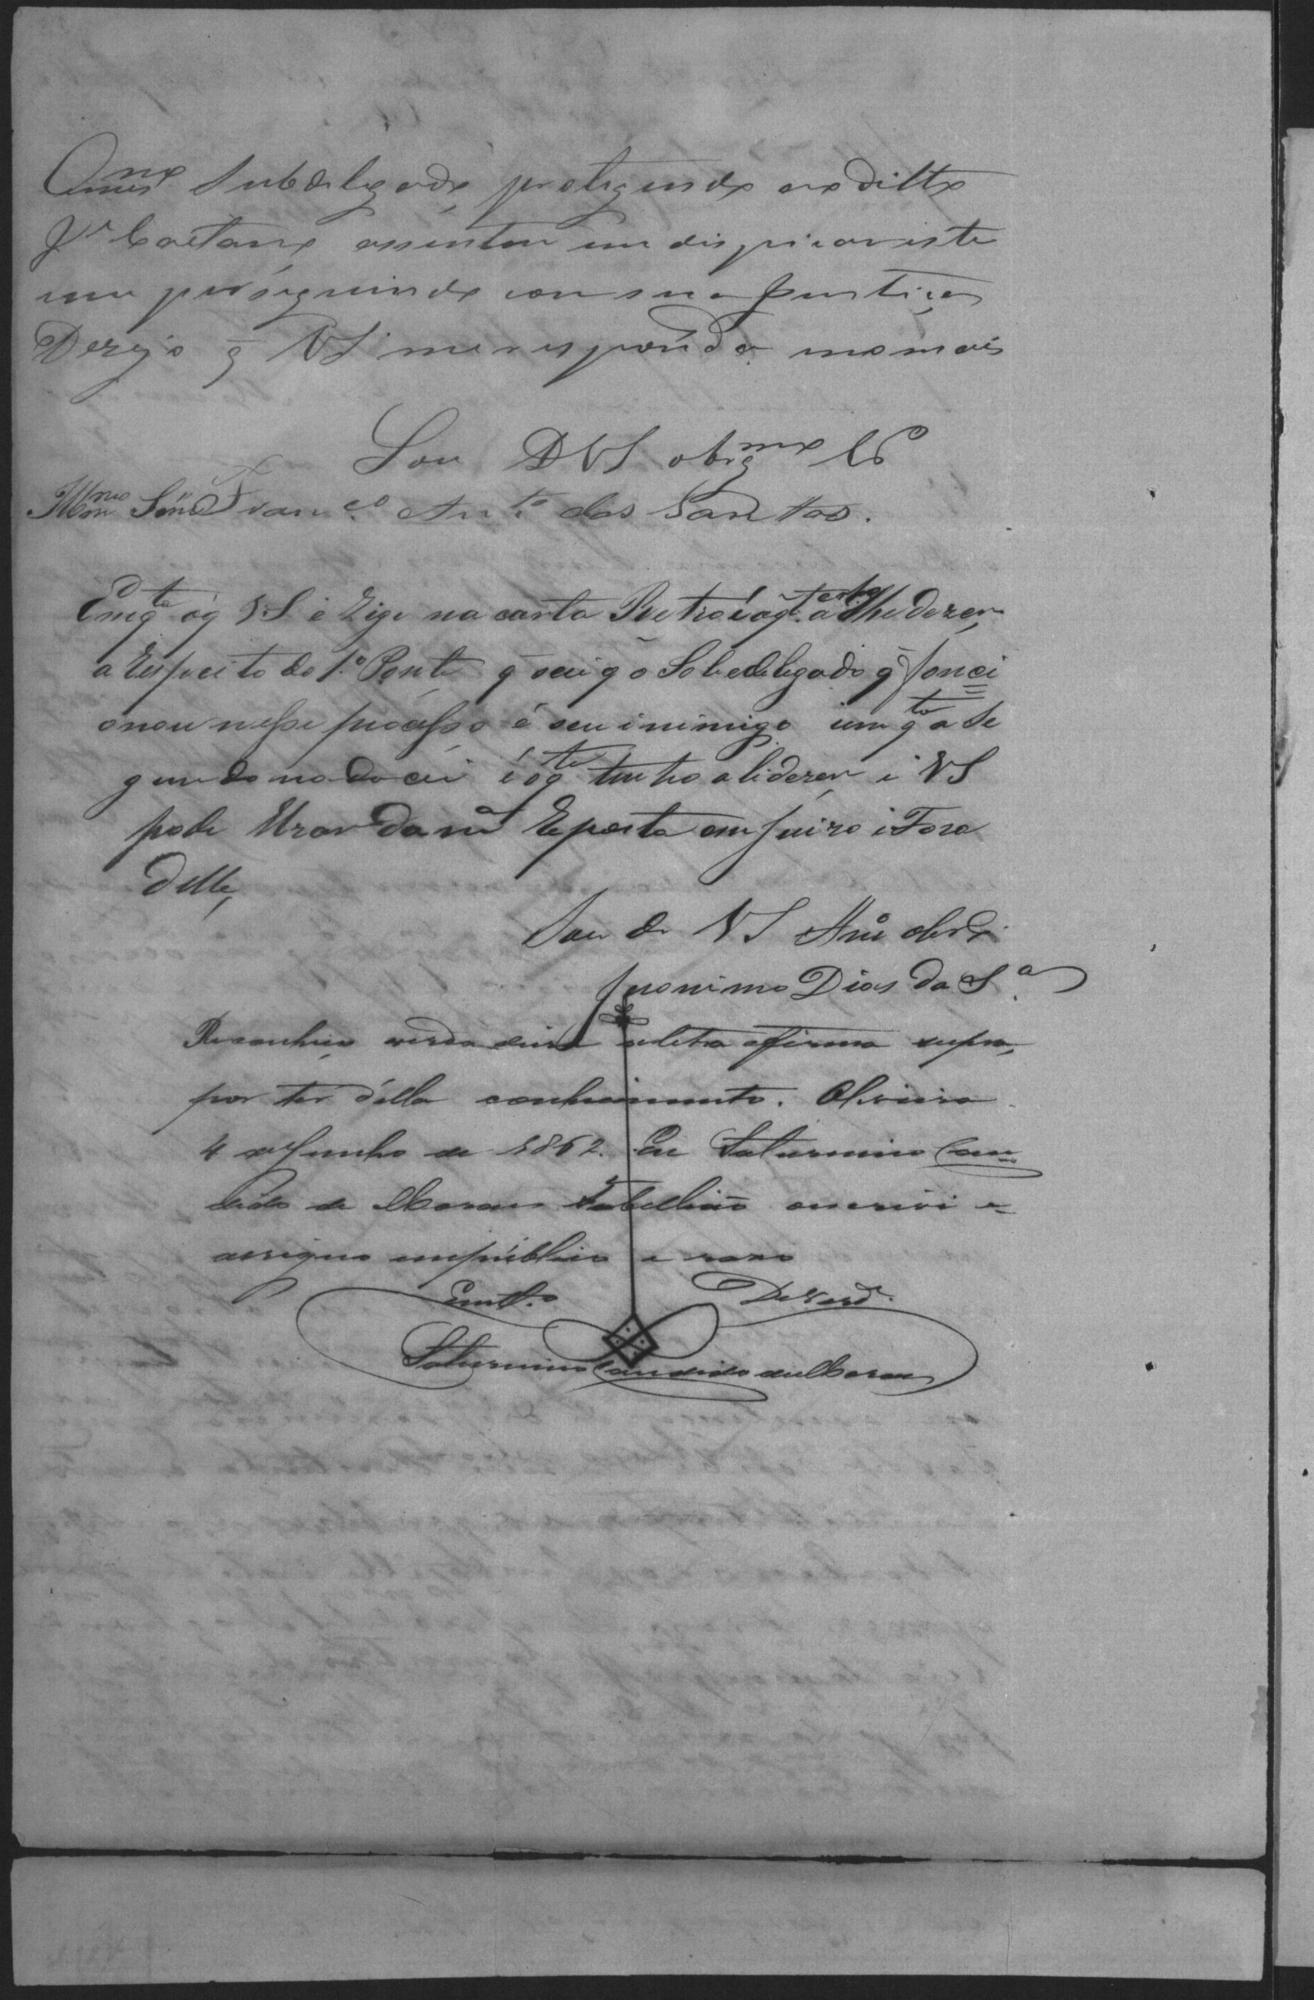 O mmo Subdelegado, protegendo ao ditto
Je Caetano assentou em
me perseguindo com sua Justiça
Dezejo q̃ VS me responda no mais
Sou D VS obrgmo Co
Franco Anto dos Santos.
Emqto oq VS Exige na carta Retro é oq tenho a lhe dezer
a Respeito do 1º Ponto q̃ sei q̃ o Sobedelegado q̃ fonci
onou nesse processo é seu inimigo iem qto a Se
gundo nada cei é oq tenho a lidezer, i VS
pode Uzar da mª Reposta em Juizo i Fora
delle,
Sou de VS Amº obrdº
Jeronimo Dias da Sª
Reconheço verdadeira a letra e firma supra,
por ter della conhecimento. Oliveira
4 de Junho de 1862. Eu Saturnino Can
dido de Moraes Tabellião escrevi e
assigno em publico e razo
Em tº de verdº
Saturnino Candido de Moraes